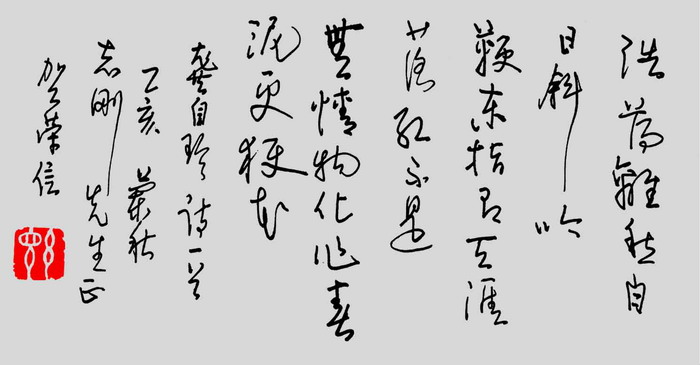 浩荡離愁白
日斜吟
鞭东指即天涯
落红不是
無情物化作春
泥更護花
龔自珍诗一首
乙亥蘭秋
志刚先生正
贺荣信